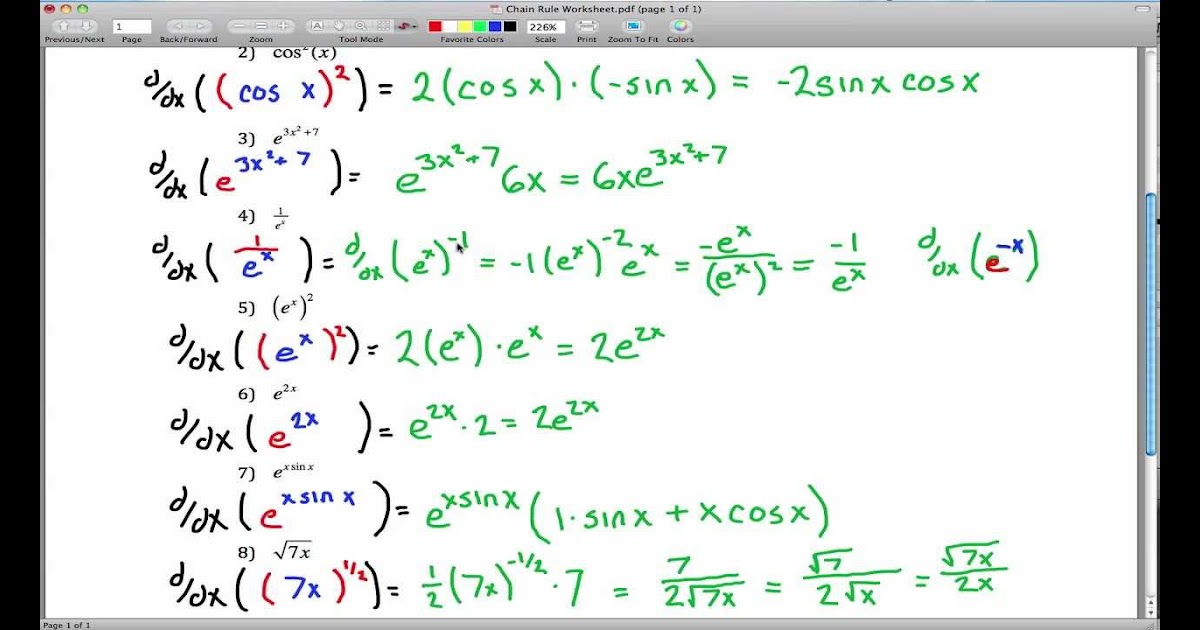 Chain Rule Worksheet.pdf (page 1 of 1)
1 A 226%
Previous/Next Page Back/Forward Zoom Tool Mode Favorite Colors Scale Print Zoom To Fit Colors
2) cos²(x)
d/dx ((cos x)²) = 2(cos x)·(-sin x) = -2sinx cosx
3) e^{3x²+7}
d/dx (e^{3x²+7}) = e^{3x²+7} 6x = 6xe^{3x²+7}
4) 1/e^x
d/dx (1/e^x) = d/dx (e^x)^{-1} = -1(e^x)^{-2} e^x = -e^x/(e^x)² = -1/e^x d/dx (e^{-x})
5) (e^x)²
d/dx ((e^x)²) = 2(e^x)·e^x = 2e^{2x}
6) e^{2x}
d/dx (e^{2x}) = e^{2x}·2 = 2e^{2x}
7) e^{x sin x}
d/dx (e^{x sin x}) = e^{x sin x} (1·sinx + x cosx)
8) √7x
d/dx ((7x)^{1/2}) = 1/2 (7x)^{-1/2}·7 = 7/2√7x = √7/2√x = √7x/2x
Page 1 of 1